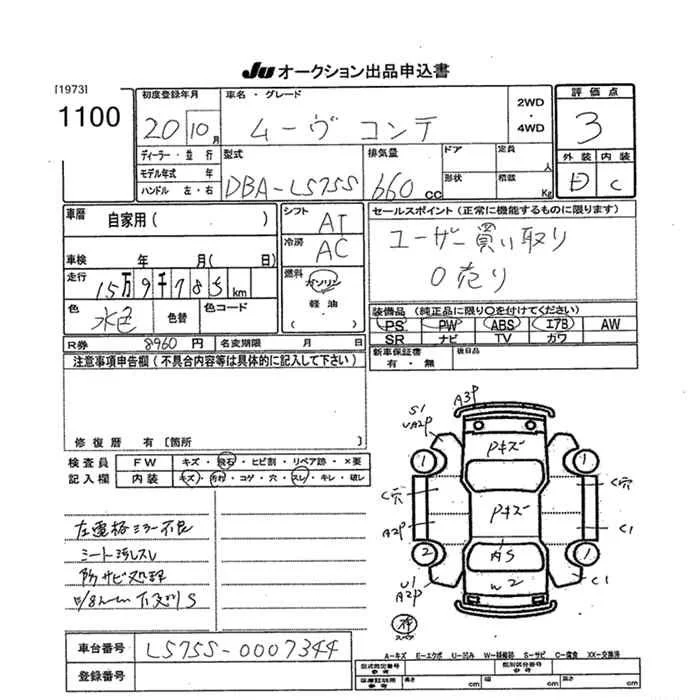 JU オークション出品申込書
[1973]
1100
初度登録年月 車名・グレード 2WD・4WD 評価点
20 10月 ムーヴ コンテ 3
ディーラー・並行 型式 排気量 ドア 定員 人 外装 内装
モデル年式 年 形状 積載 Kg
ハンドル 左・右 DBA-L575S 660cc D C
車歴 自家用( ) シフト AT
冷房 AC
車検 年 月( 日)
走行 15万9千785km
燃料 ガソリン
軽油
( )
色 水色 色替 色コード
R券 8960円 名変期限 月 日
セールスポイント(正常に機能するものに限ります)
ユーザー買い取り
0売り
装備品(純正品に限り○を付けてください)
PS PW ABS エアB AW
SR ナビ TV カワ
新車保証書 後日品
有・無
注意事項申告欄(不具合内容等は具体的に記入して下さい)
修復歴 有[箇所 ]
検査員 FW キズ・飛石・ヒビ割・リペア跡・×要
記入欄 内装 キズ・汚れ・コゲ・穴・スレ・キレ・破レ
左電格ミラー不良
シート汚しスレ
防サビ処理
S
A3P
S1
UA2P
Pキズ
1 1
C穴 C穴
Pキズ
A2P C1
2 1
AS
W2
U1
A2P
C1
スペア
車台番号 L575S-0007344
登録番号
A-キズ E-エクボ U-凹み W-補修跡 S-サビ C-腐食 XX-交換済
型式指定番号 類別区分番号
参考 参考
車庫証明用 長さ 幅 高さ
参考 cm cm cm